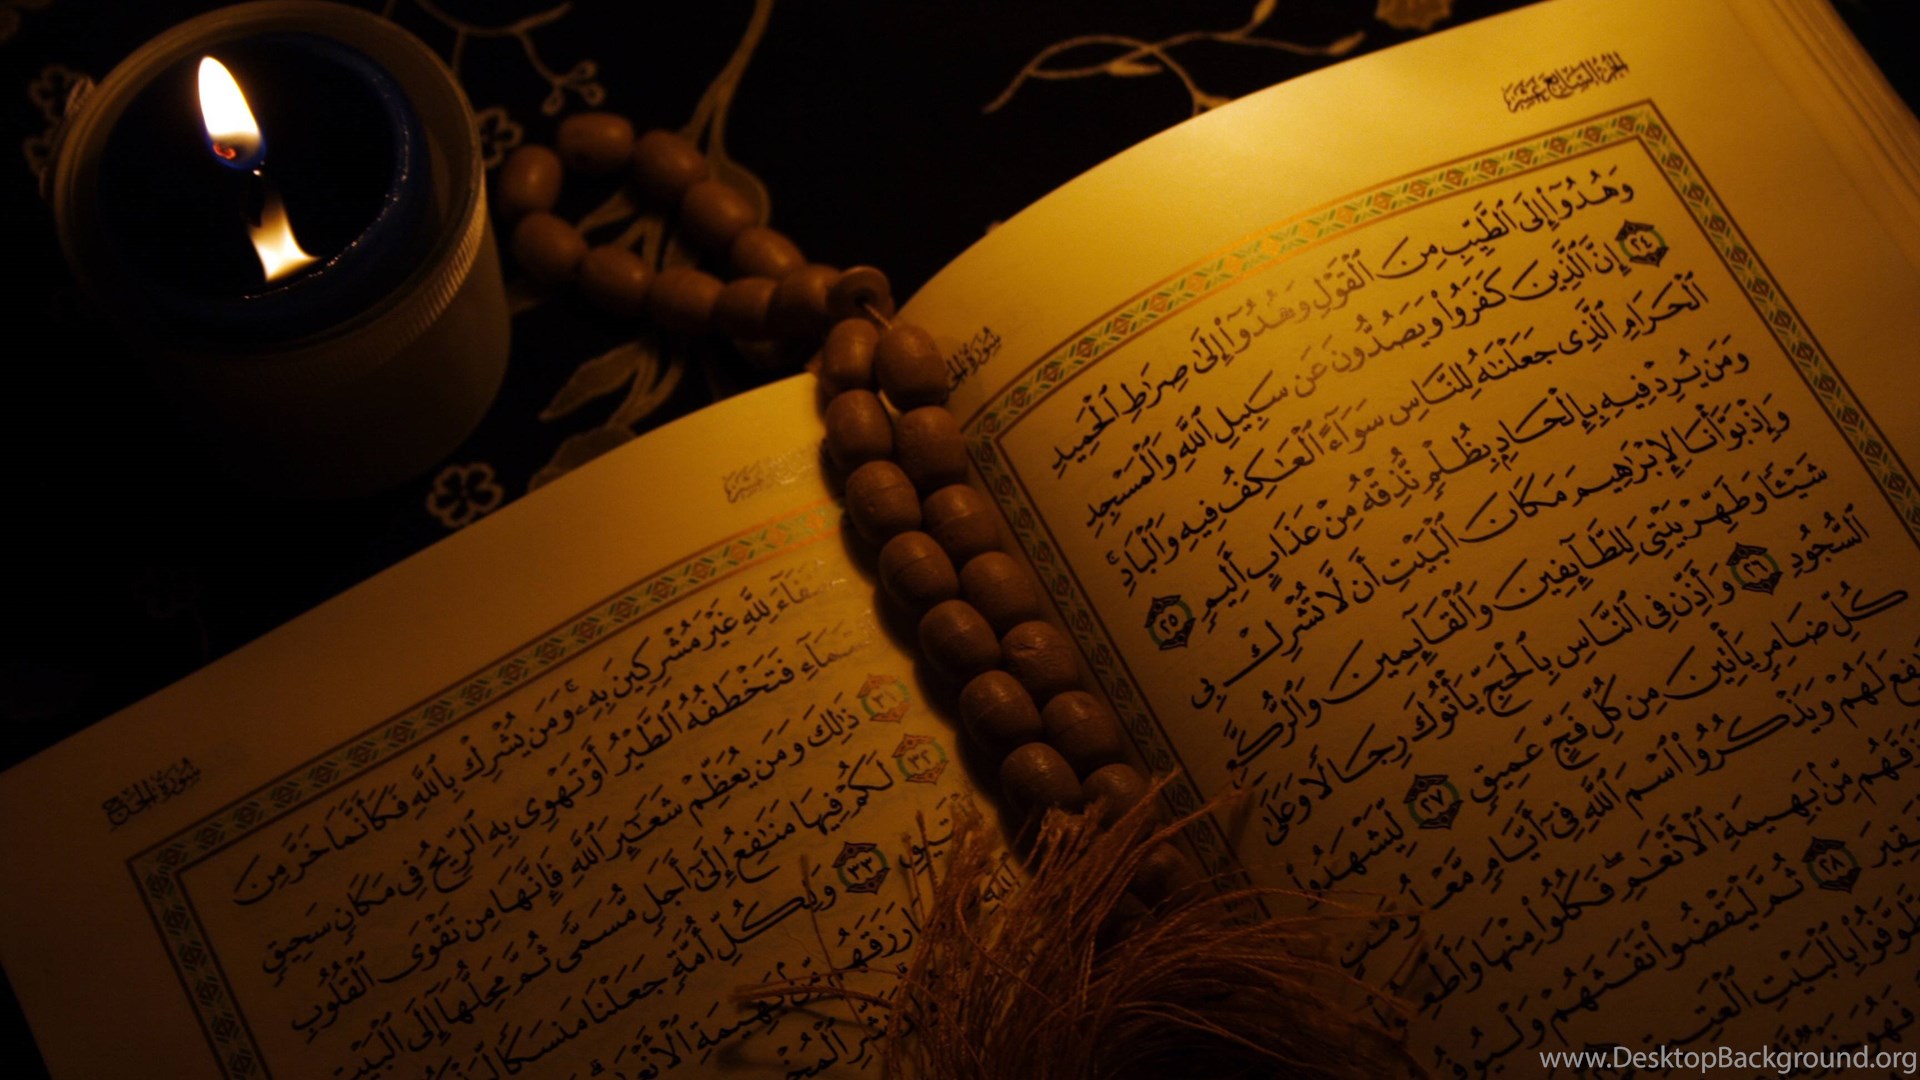 الجزء السابع عشر
وَهُدُوٓا۟ إِلَى ٱلطَّيِّبِ مِنَ ٱلْقَوْلِ وَهُدُوٓا۟ إِلَىٰ صِرَٰطِ ٱلْحَمِيدِ
٢٤ إِنَّ ٱلَّذِينَ كَفَرُوا۟ وَيَصُدُّونَ عَن سَبِيلِ ٱللَّهِ وَٱلْمَسْجِدِ
ٱلْحَرَامِ ٱلَّذِى جَعَلْنَٰهُ لِلنَّاسِ سَوَآءً ٱلْعَٰكِفُ فِيهِ وَٱلْبَادِ ۚ
وَمَن يُرِدْ فِيهِ بِإِلْحَادٍۭ بِظُلْمٍ نُّذِقْهُ مِنْ عَذَابٍ أَلِيمٍ ٢٥
وَإِذْ بَوَّأْنَا لِإِبْرَٰهِيمَ مَكَانَ ٱلْبَيْتِ أَن لَّا تُشْرِكْ بِى
شَيْـًٔا وَطَهِّرْ بَيْتِىَ لِلطَّآئِفِينَ وَٱلْقَآئِمِينَ وَٱلرُّكَّعِ
ٱلسُّجُودِ ٢٦ وَأَذِّن فِى ٱلنَّاسِ بِٱلْحَجِّ يَأْتُوكَ رِجَالًا وَعَلَىٰ
كُلِّ ضَامِرٍ يَأْتِينَ مِن كُلِّ فَجٍّ عَمِيقٍ ٢٧ لِّيَشْهَدُوا۟
لَهُمْ وَيَذْكُرُوا۟ ٱسْمَ ٱللَّهِ فِىٓ أَيَّامٍ مَّعْلُومَٰتٍ
مِّنۢ بَهِيمَةِ ٱلْأَنْعَٰمِ ۖ فَكُلُوا۟ مِنْهَا وَأَطْعِمُوا۟
٢٨ ثُمَّ لْيَقْضُوا۟ تَفَثَهُمْ وَلْيُوفُوا۟
بِٱلْبَيْتِ ٱلْعَتِيقِ
سورة الحج
لِلَّهِ غَيْرَ مُشْرِكِينَ بِهِۦ ۚ وَمَن يُشْرِكْ بِٱللَّهِ فَكَأَنَّمَا خَرَّ مِنَ
ٱلسَّمَآءِ فَتَخْطَفُهُ ٱلطَّيْرُ أَوْ تَهْوِى بِهِ ٱلرِّيحُ فِى مَكَانٍ سَحِيقٍ
٣١ ذَٰلِكَ وَمَن يُعَظِّمْ شَعَٰٓئِرَ ٱللَّهِ فَإِنَّهَا مِن تَقْوَى ٱلْقُلُوبِ
٣٢ لَكُمْ فِيهَا مَنَٰفِعُ إِلَىٰٓ أَجَلٍ مُّسَمًّى ثُمَّ مَحِلُّهَآ إِلَى ٱلْبَيْتِ
٣٣ وَلِكُلِّ أُمَّةٍ جَعَلْنَا مَنسَكًا
رَزَقَهُم مِّنۢ بَهِيمَةِ ٱلْأَنْعَٰمِ
www.DesktopBackground.org